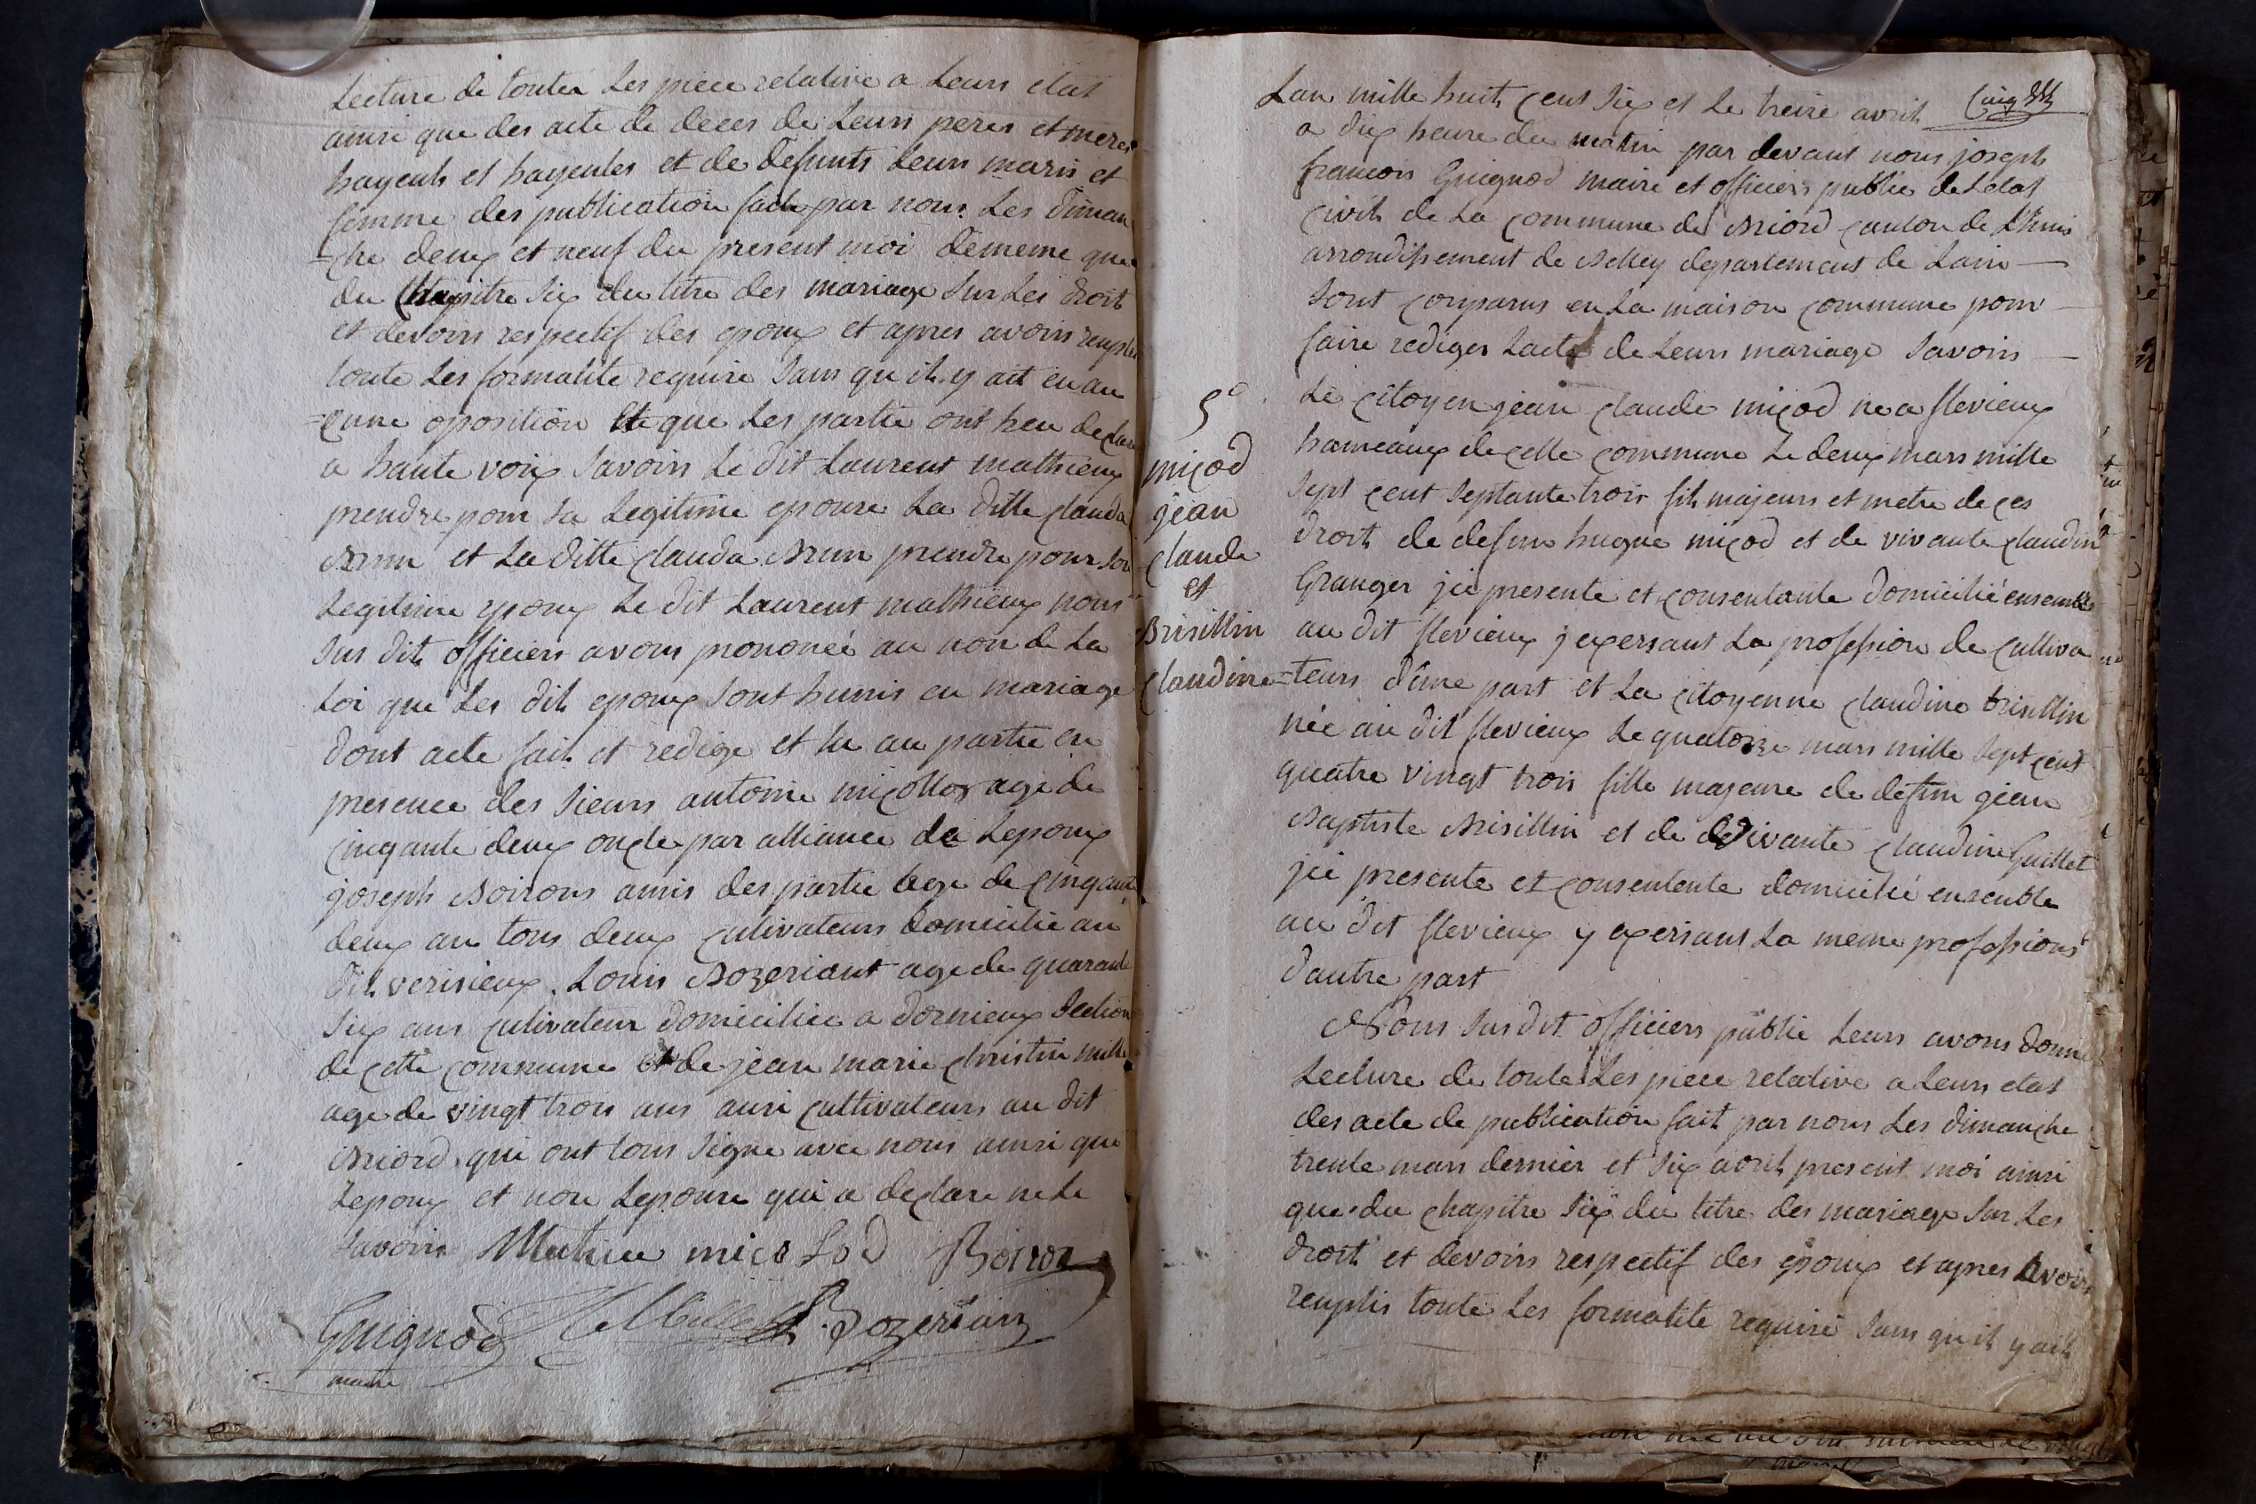 Lecture de toutes les piece relative a Leurs etat
ainsi que des acte de deces de Leurs peres et meres
hayeuls et hayeules et de defunts Leurs maris et
femme des publication faite par nous Les diman
=che deux et neuf du present moi demême que
du Chapitre six du titre des mariage sur Les droit
et devoirs respectif des epoux et apres avoirs remplis
toute Les formalite requise sans qu'il y ait eu au
=cune oposition et que Les partie ont heu declare
a haute voix savoirs Le dit Laurent mathieux
prendre pour sa Legitime epouse La ditte clauda
Brun et La ditte clauda Brun prendre pour son
Legitime epoux Le dit Laurent mathieux nous
sus dit officiers avons prononcé au non de La
Loi que Les dit epoux sont hunis en mariage
dont acte fait et redige et lu au partie en
presence des sieurs antoine micollod age de
cinqante deux oncle par alliance de Lepoux
joseph Boirons amis des partie age de cinqante
deux an tous deux cultivateurs domicilie au
dit verisieux. Louis Bozeriant age de quarante
six ans cultivateur domicilier a dornieux section
de cette commune et de jean marie christin mille
age de vingt trois ans ausi cultivateurs au dit
Briord qui ont tous signe avec nous ainsi que
Lepoux et non Lepouse qui a declare ne Le
savoirs Matieu micolod Boiron
Guignod Bozerian
maire
Cinq
Lan mille huit cent six et Le treize avril
a dix heure du matin par devant nous joseph
francois Guignod maire et officiers public de Letat
civil de La commune de Briord canton de Lhuis
arrondissement de Belley departement de Lain
sont comparus en La maison commune pour
faire rediger Lacte de Leurs mariage savoirs
5°
micod
jean
claude
et
Brisillin
claudine
Le citoyen jean claude micod ne a flevieux
hameaux de cette commune Le deux mars mille
sept cent septante trois fils majeurs et metre de ces
droit de defun hugue micod et de vivante claudine
Granger ici presente et consentante domicilié ensemble
au dit flevieux y exersant La profession de cultiva
=teurs d'une part et La citoyenne claudine brisillin
née au dit flevieux Le quatorze mars mille sept cent
quatre vingt trois fille majeure de defun jean
Baptiste Brisillin et de vivante claudine Guillet
ici presente et consentente domicilié ensemble
au dit flevieux y exersant La meme professions
dautre part
Nous sus dit officiers public Leurs avons donne
Lecture de toute Les piece relative a Leurs etat
des acte de publication fait par nous Les dimanche
trente mars dernier et six avril present moi ainsi
que du chapitre six du titre des mariage sur Les
droit et devoirs respectif des epoux et apres avoirs
remplis toute Les formalite requise sans qu'il y ait